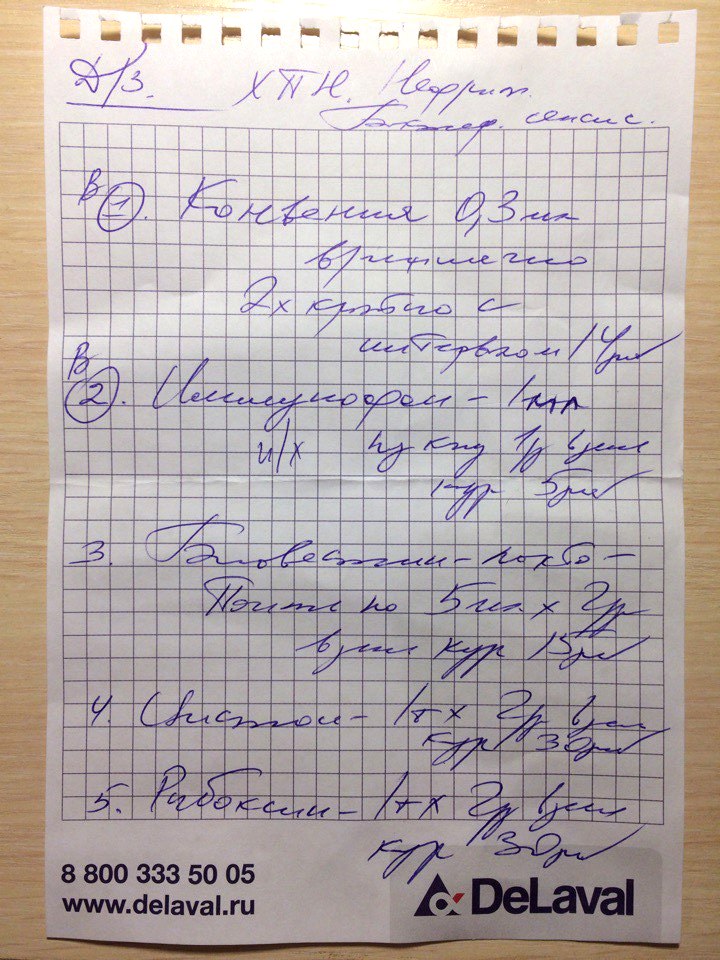 Д/З. ХПН. Нефрит.
Бактер. сепсис.
В ① . Конвения 0,3 мл
в/мышечно
2х кратно с
интервалом 14 дней
В ② . Иммунофан - 1 мл
п/к 1 р в день
курс 5 дней
3. Биовестин - лакто -
Поить по 5 мл х 2 р
в день курс 15 дней
4. Цистон - 1т х 2 р в день
курс 30 дней
5. Рибоксин - 1т х 2 р в день
курс 30 дней
8 800 333 50 05
www.delaval.ru
DeLaval